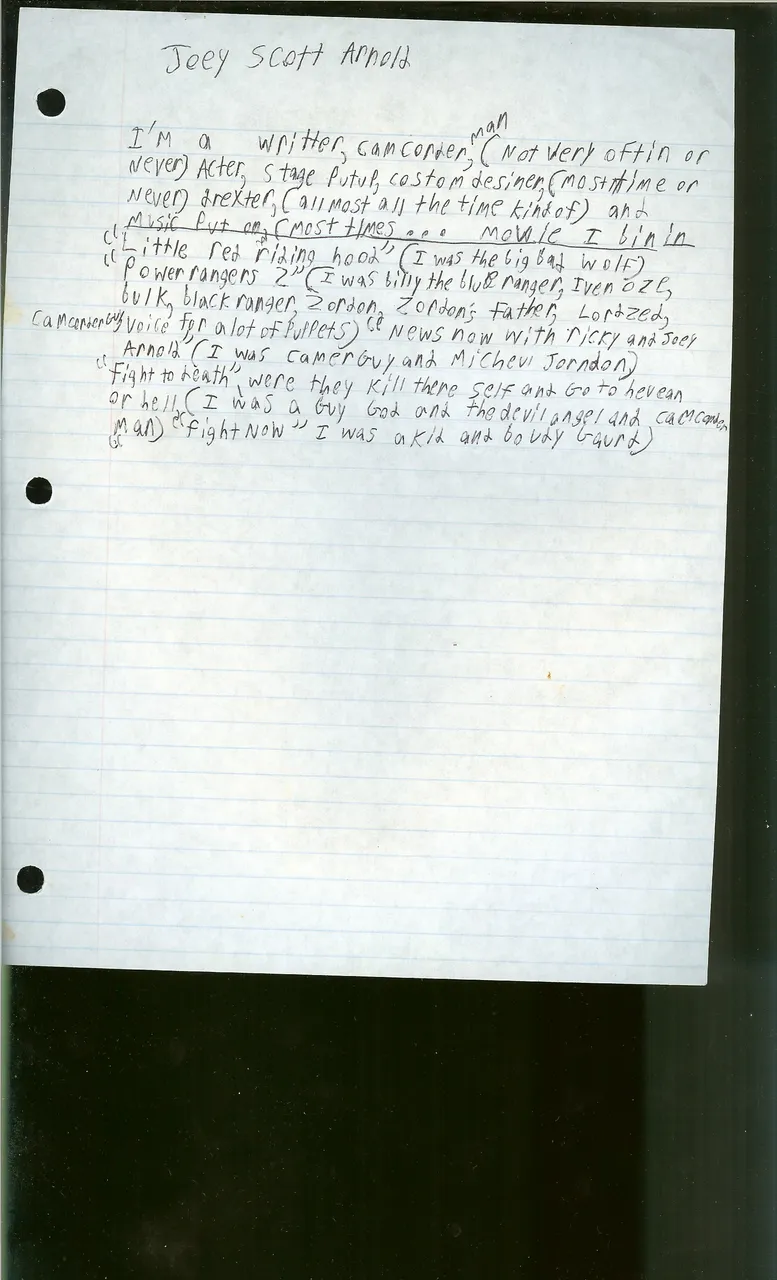 Joey Scott Arnold
man
I'M a writter, camcorder, (Not very oftin or
Never) Acter, Stage Putup, costom desiner, (most time or
Never) drexter, (all most all the time kind of) and
Music Put on, (most times... movie I bin in
"Little red riding hood" (I was the big bad wolf)
"Power rangers 2" (I was billy the blue ranger, Iven oze,
bulk, black ranger, Zordon, Zordon's Father, Lordzed,
camcorder guy voice for a lot of Puppets) "News now with ricky and Joey
Arnold" (I was camer Guy and Michevl Jorndon)
"Fight to death", were they kill there self and Go to hevean
or hell, (I was a Guy God and the devil angel and camcorder
man) "Fight Now" I was a kid and boudy Gaurd)